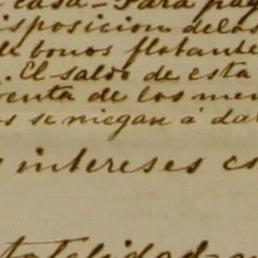 casa - Para pag
isposicion de los
de bonos flotante
. El saldo de esta
venta de los mer
os se niegan á dar
s intereses es
totalidad